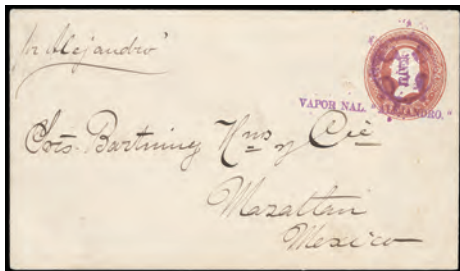 pr Alejandro
VAPOR NAL. "ALEJANDRO."
Sres. Bartning Hnos y Cie
Mazatlan
Mexico